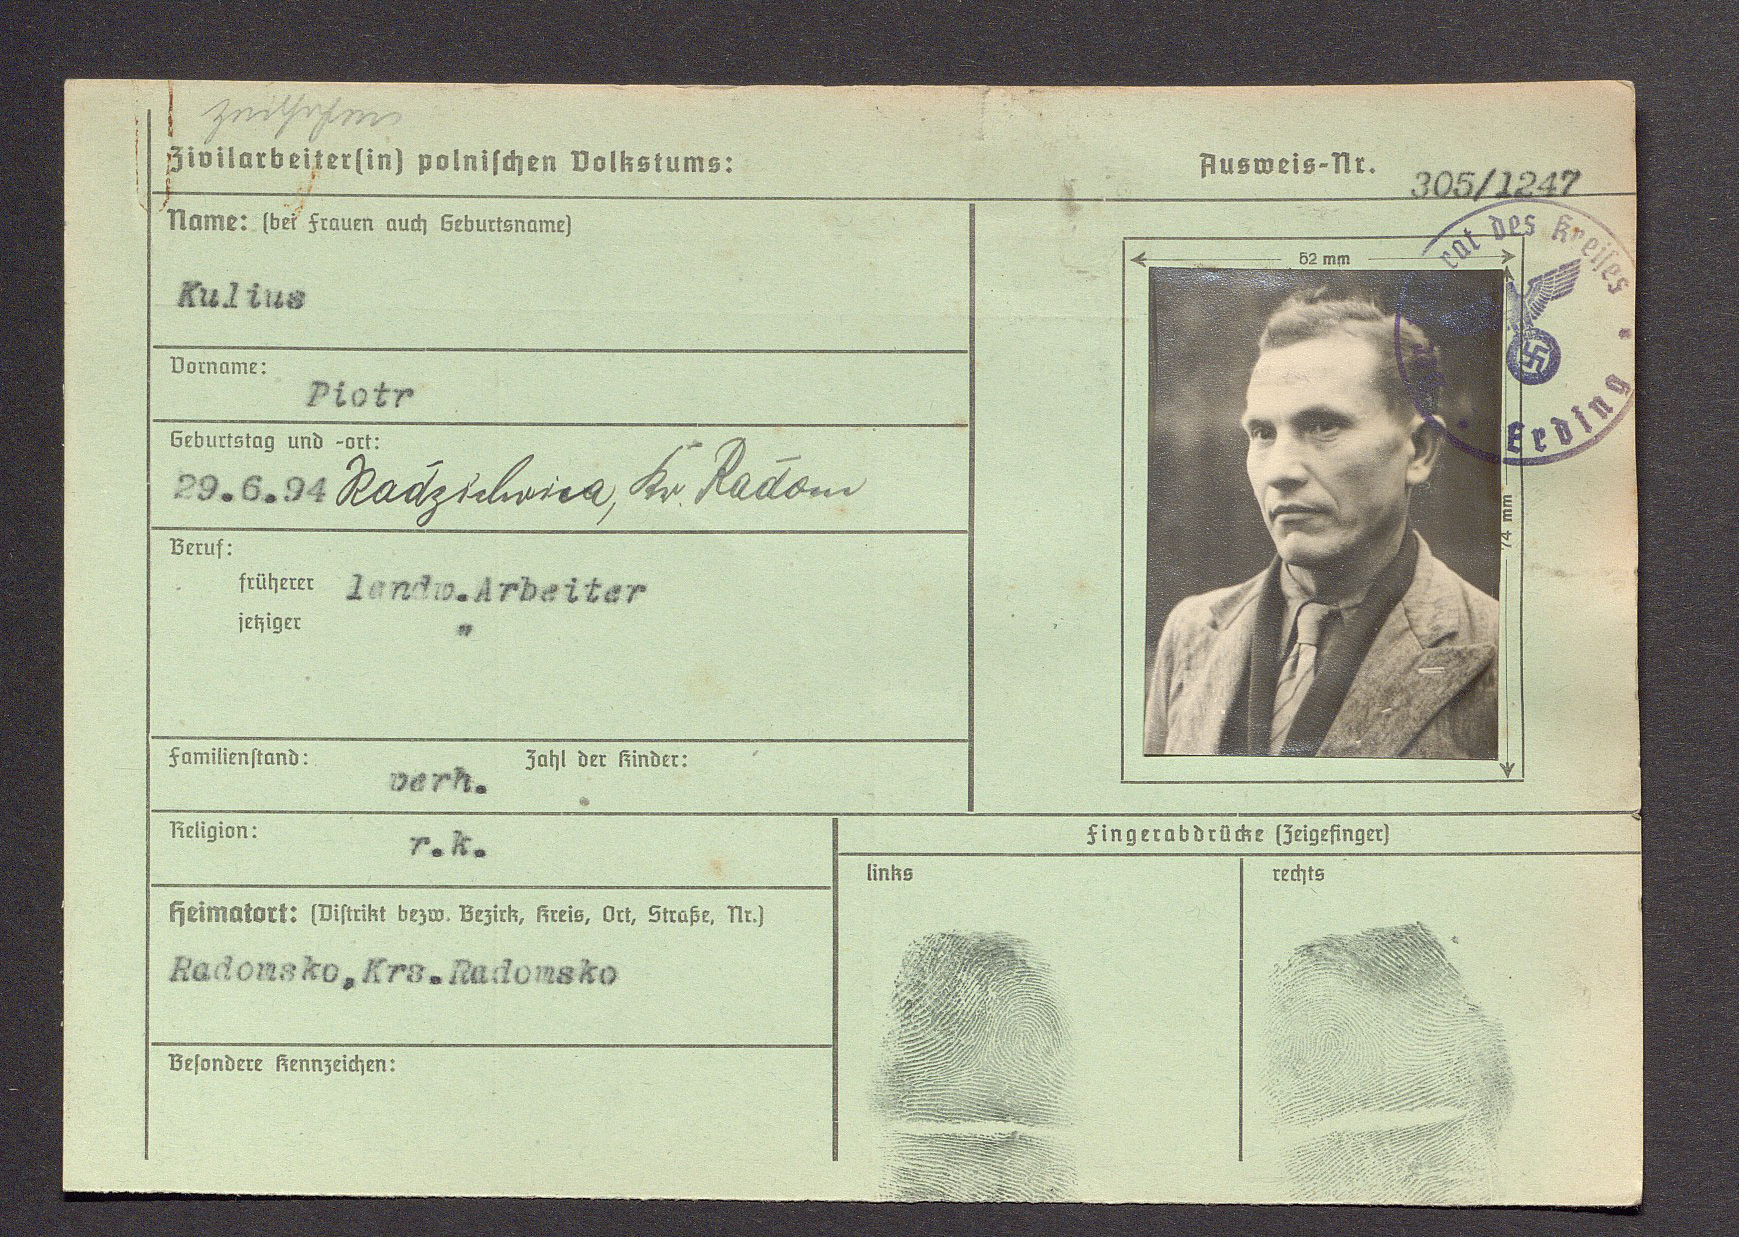 Zivilarbeiter(in) polnischen Volkstums:
Ausweis-Nr. 305/1247
Name: (bei Frauen auch Geburtsname)
Kulius
Vorname:
Piotr
Geburtstag und -ort:
29.6.94 Radzielwica, Kr. Radom
Beruf:
früherer landw.Arbeiter
jetziger "
Familienstand: verh. Zahl der Kinder:
Religion: r.k.
Heimatort: (Distrikt bezw. Bezirk, Kreis, Ort, Straße, Nr.)
Radomsko,Krs.Radomsko
Besondere Kennzeichen:
52 mm
74 mm
rat des Kreises
Erding
Fingerabdrücke (Zeigefinger)
links
rechts